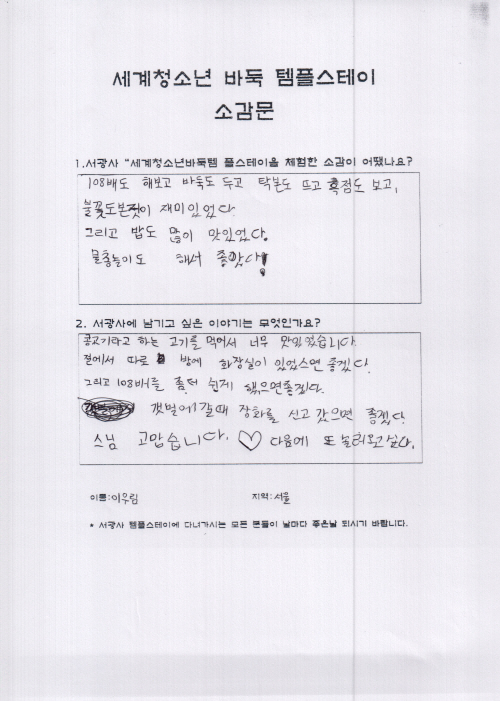 세계청소년 바둑 템플스테이
소감문
1.서광사 "세계청소년바둑템 플스테이을 체험한 소감이 어땠나요?
108배도 해보고 바둑도 두고 탁본도 뜨고 흑점도 보고,
불꽃도본것이 재미있었다.
그리고 밥도 많이 맛있었다.
물총놀이도 해서 좋았다!
2. 서광사에 남기고 싶은 이야기는 무엇인가요?
콩고기라고 하는 고기를 먹어서 너무 맛있었습니다.
절에서 따로 방에 화장실이 있었스면 좋겠다.
그리고 108배를 좀더 쉽게 했으면좋겠다.
갯벌에갈때 장화를 신고 갔으면 좋겠다.
스님 고맙습니다. ♡ 다음에 또 놀러오고싶다.
이름:이우림 지역:서울
* 서광사 템플스테이에 다녀가시는 모든 분들이 날마다 좋은날 되시기 바랍니다.